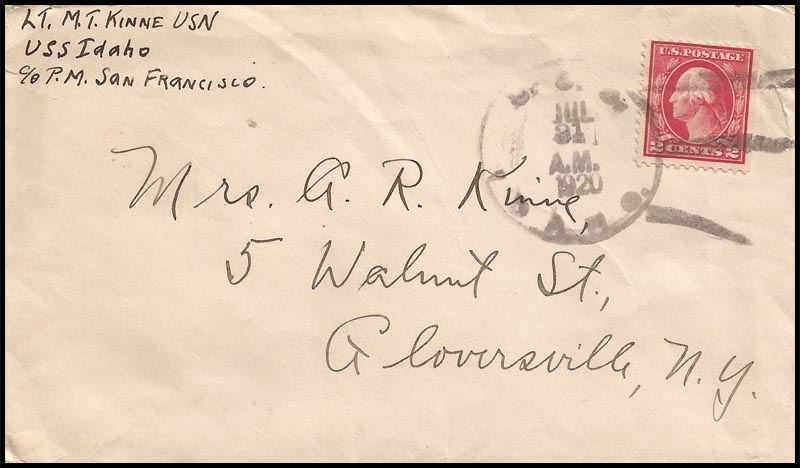 LT. M.T. KINNE USN
USS Idaho
c/o P.M. SAN FRANCISCO.
U.S. POSTAGE
2 CENTS 2
JUL
31
A.M.
1920
Mrs. A. R. Kinne,
5 Walnut St.,
Gloversville, N.Y.